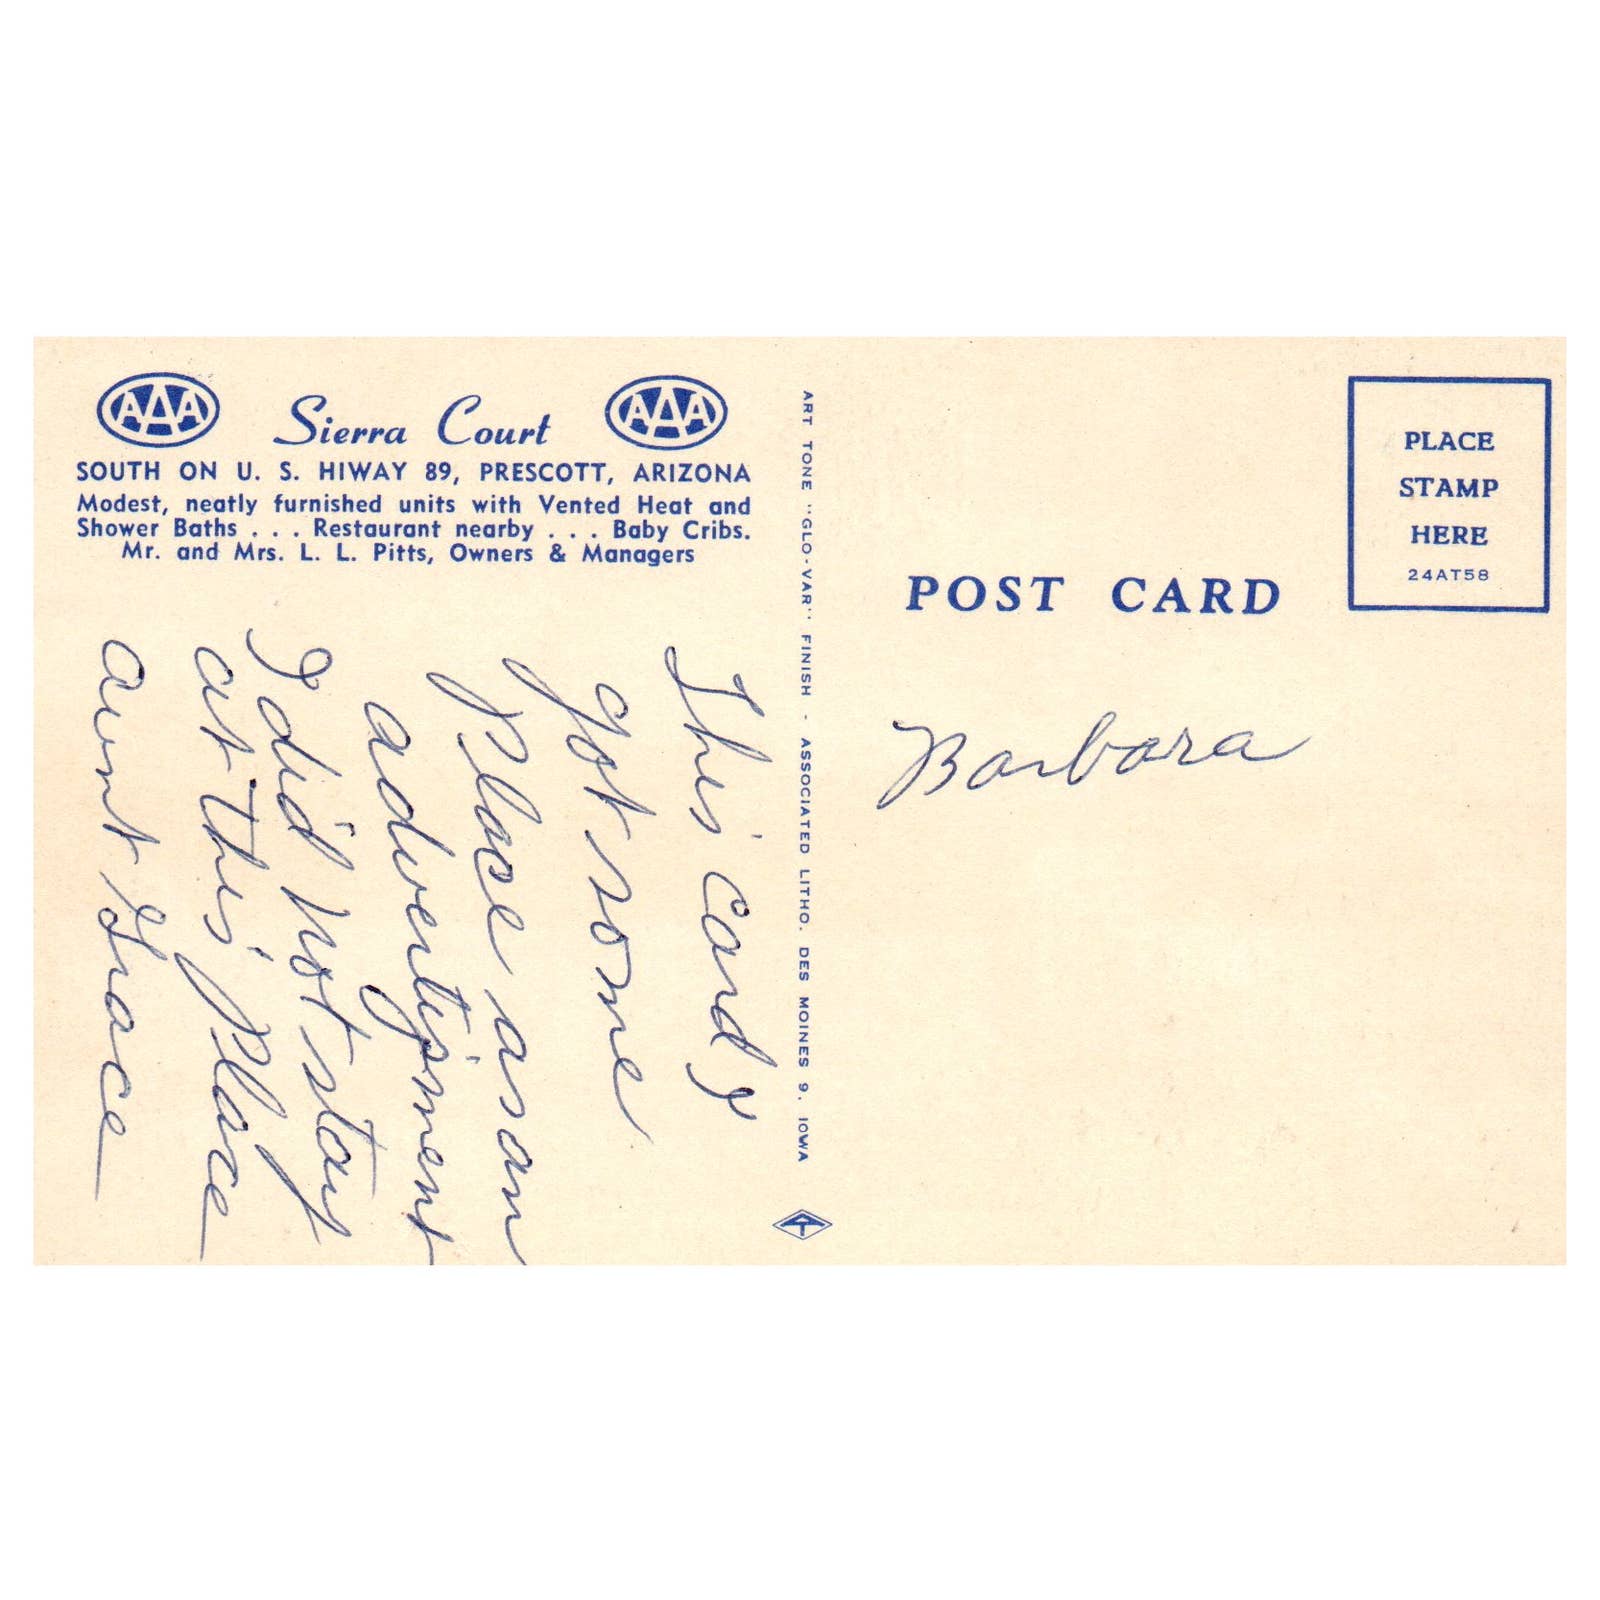 AAA Sierra Court AAA
SOUTH ON U. S. HIWAY 89, PRESCOTT, ARIZONA
Modest, neatly furnished units with Vented Heat and
Shower Baths . . . Restaurant nearby . . . Baby Cribs.
Mr. and Mrs. L. L. Pitts, Owners & Managers
This Card I
got some
Place as an
advertisment
I did not stay
at this Place
aunt Grace
ART TONE "GLO-VAR" FINISH - ASSOCIATED LITHO. DES MOINES 9, IOWA
PLACE
STAMP
HERE
24AT58
POST CARD
Barbara